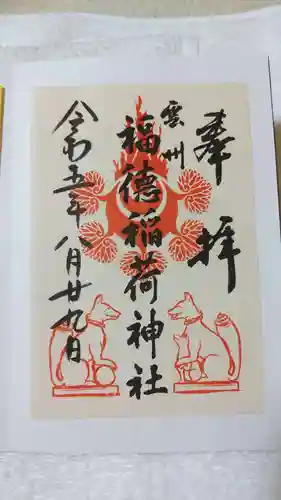 奉拝
雲州
福徳稲荷神社
令和五年八月廿九日